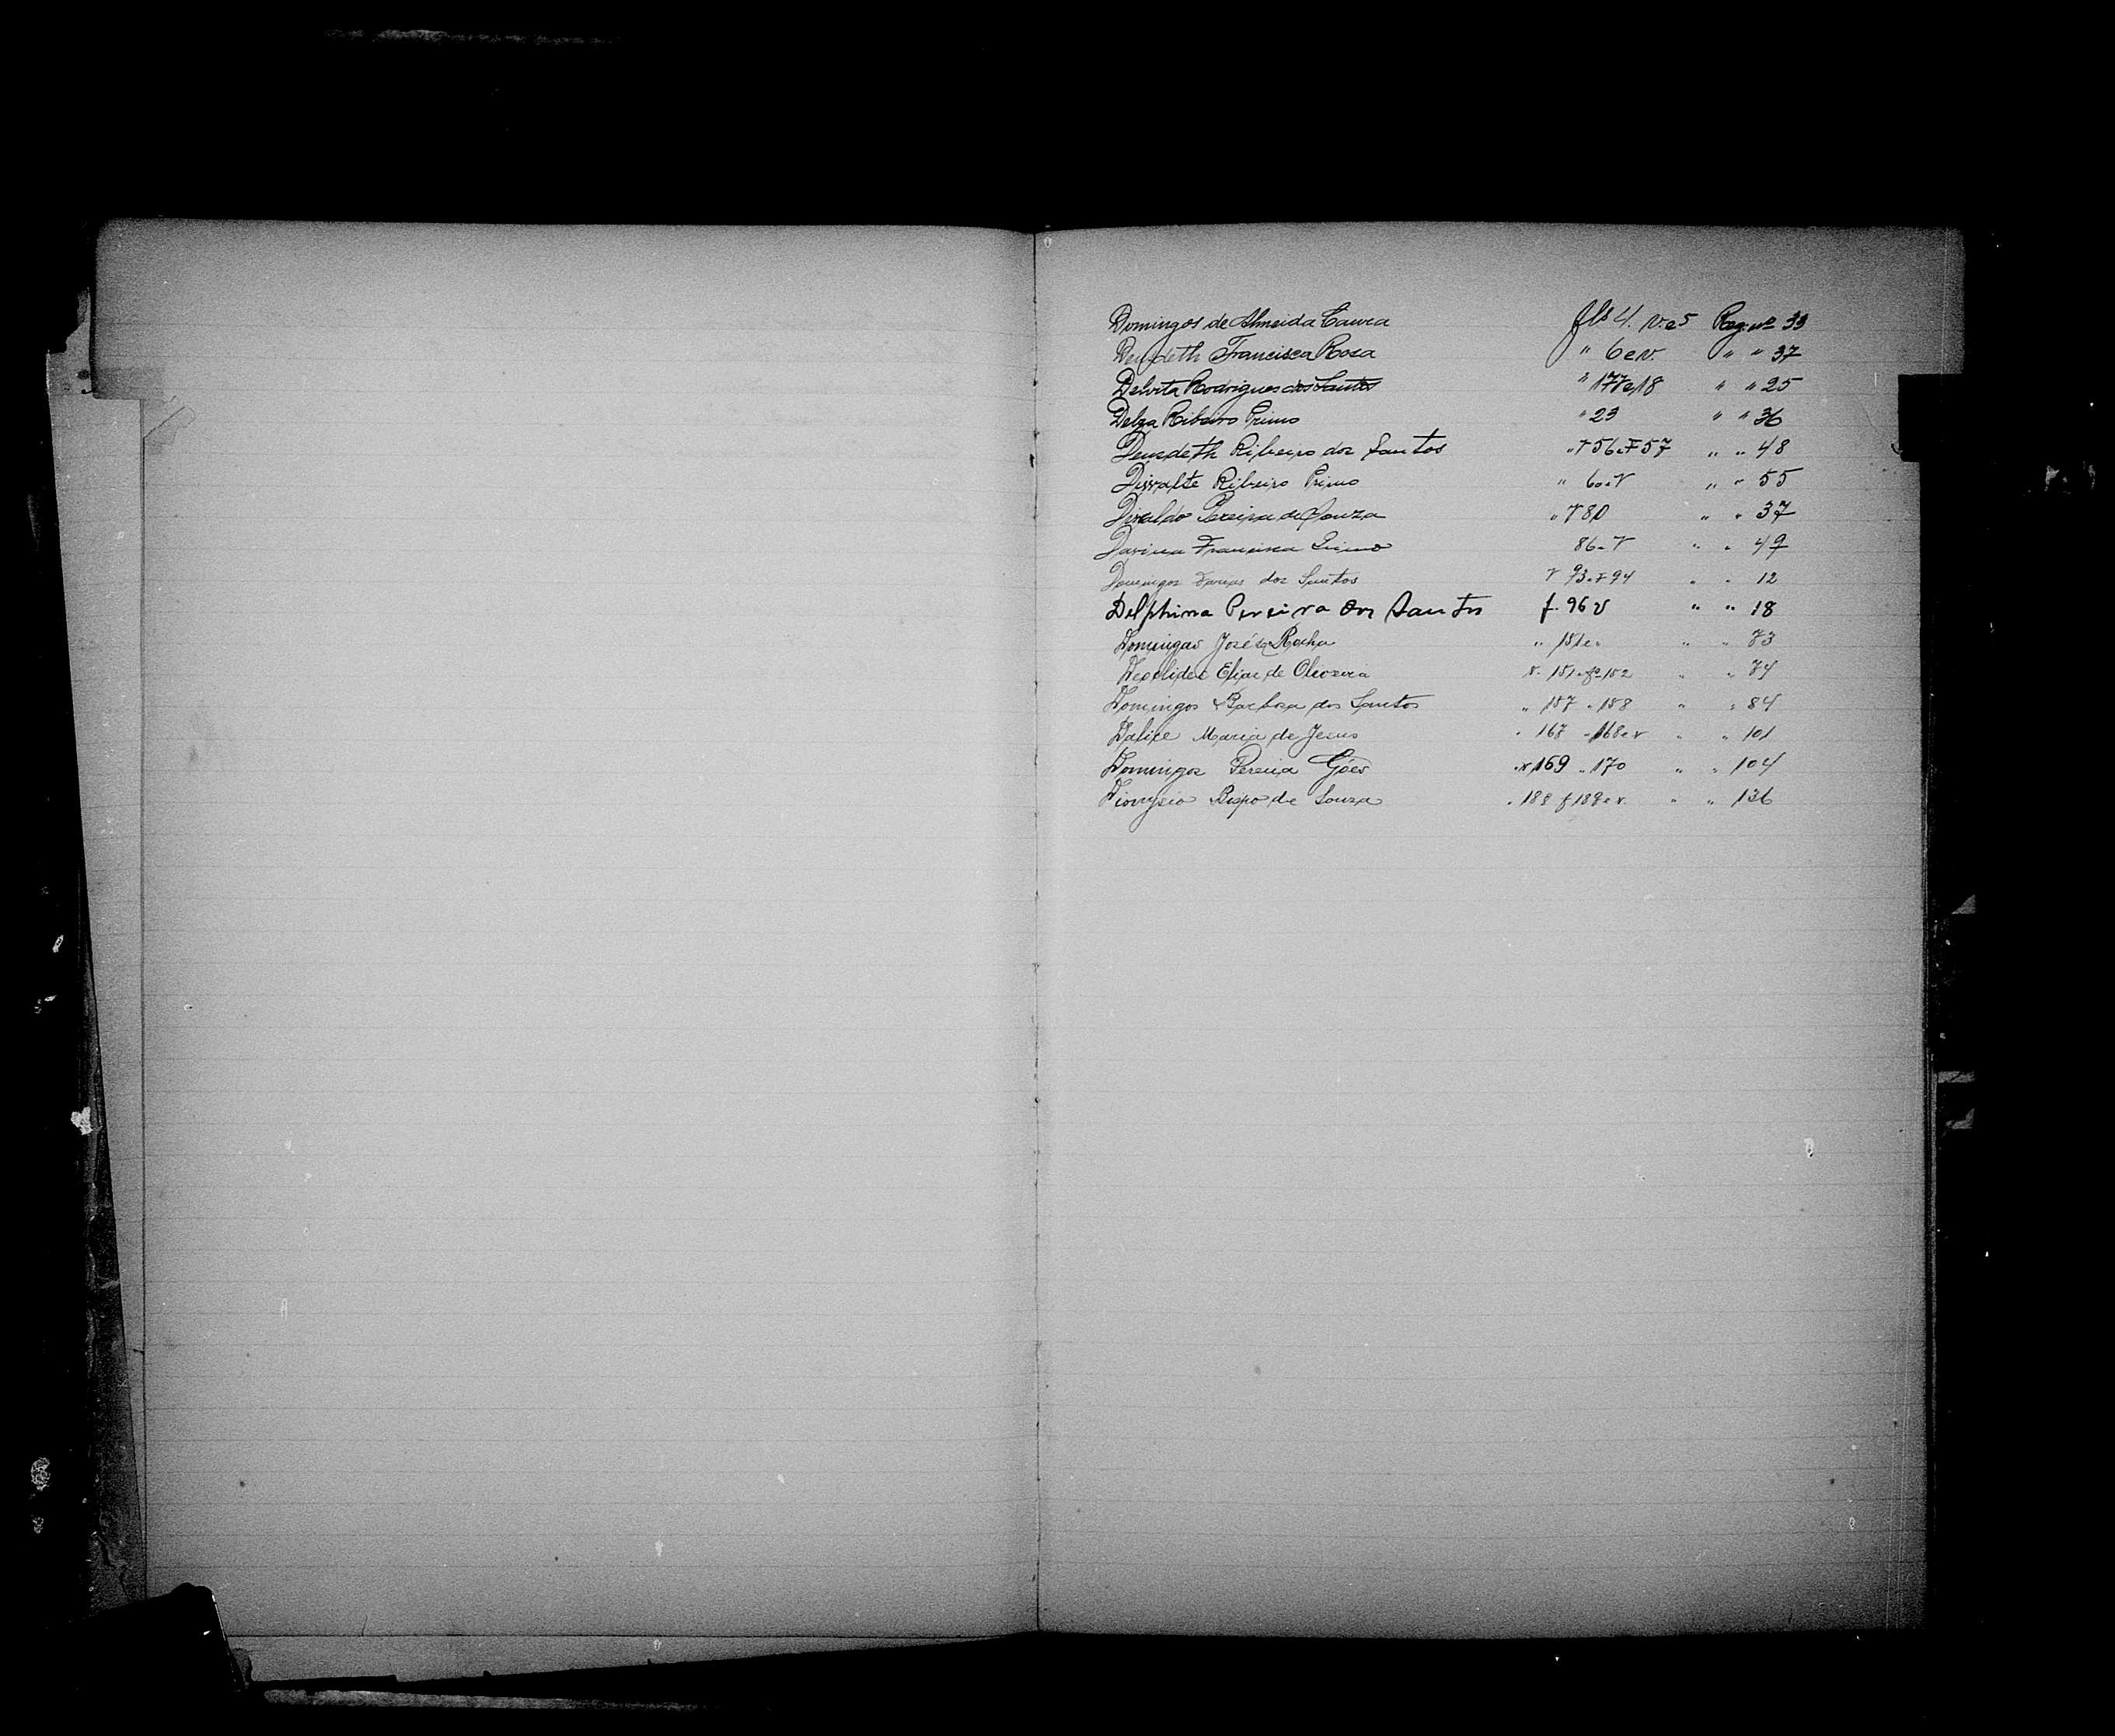 Domingos de Almeida fls 4. v. e 5 Reg. nº 33
Deusdeth Francisca Rosa " 6 e v. " " 37
Delvita Rodrigues dos Santos " 17 e 18 " " 25
Delza Ribeiro Primo " 23 " " 36
Deusdeth Ribeiro dos Santos " V 56 e F 57 " " 48
Ribeiro Primo " 60 e V " " 55
Pereira de Souza " V 80 " " 37
Francisca Primo 86 e V " " 49
Domingos dos Santos V 93 e F 94 " " 12
Delphina Pereira dos Santos f. 96 v " " 18
Domingas José Rocha " 151 e v " " 73
Elias de Oliveira v. 151 e fs 152 " " 74
Domingos Barbosa dos Santos " 157 " 158 " " 84
Dalice Maria de Jesus " 167 " 168 e v " " 101
Domingos Pereira Góes " v 169 " 170 " " 104
Dionysio Bispo de Souza " 188 f 189 e v. " " 136